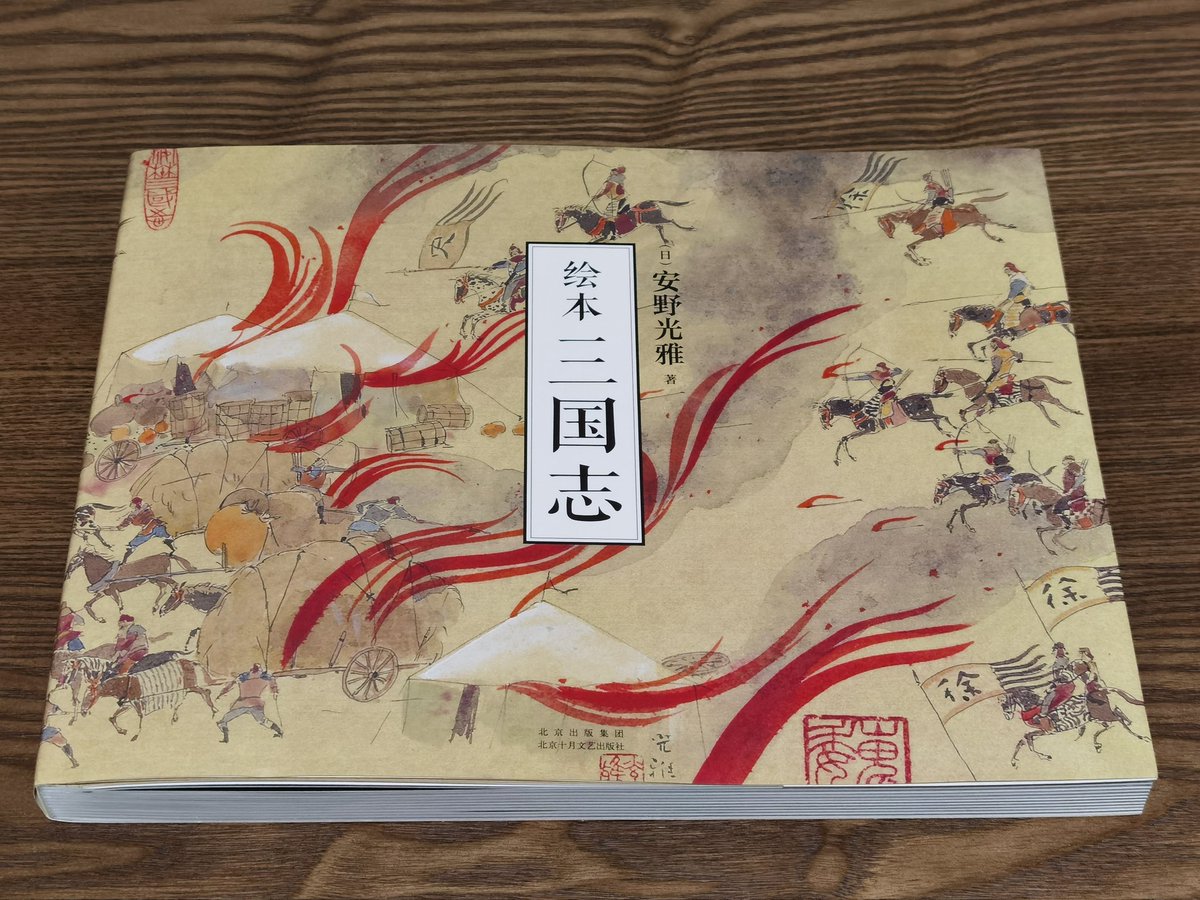 绘本 三国志
（日）安野光雅 著
北京出版集团
北京十月文艺出版社
光雅
徐
徐
徐